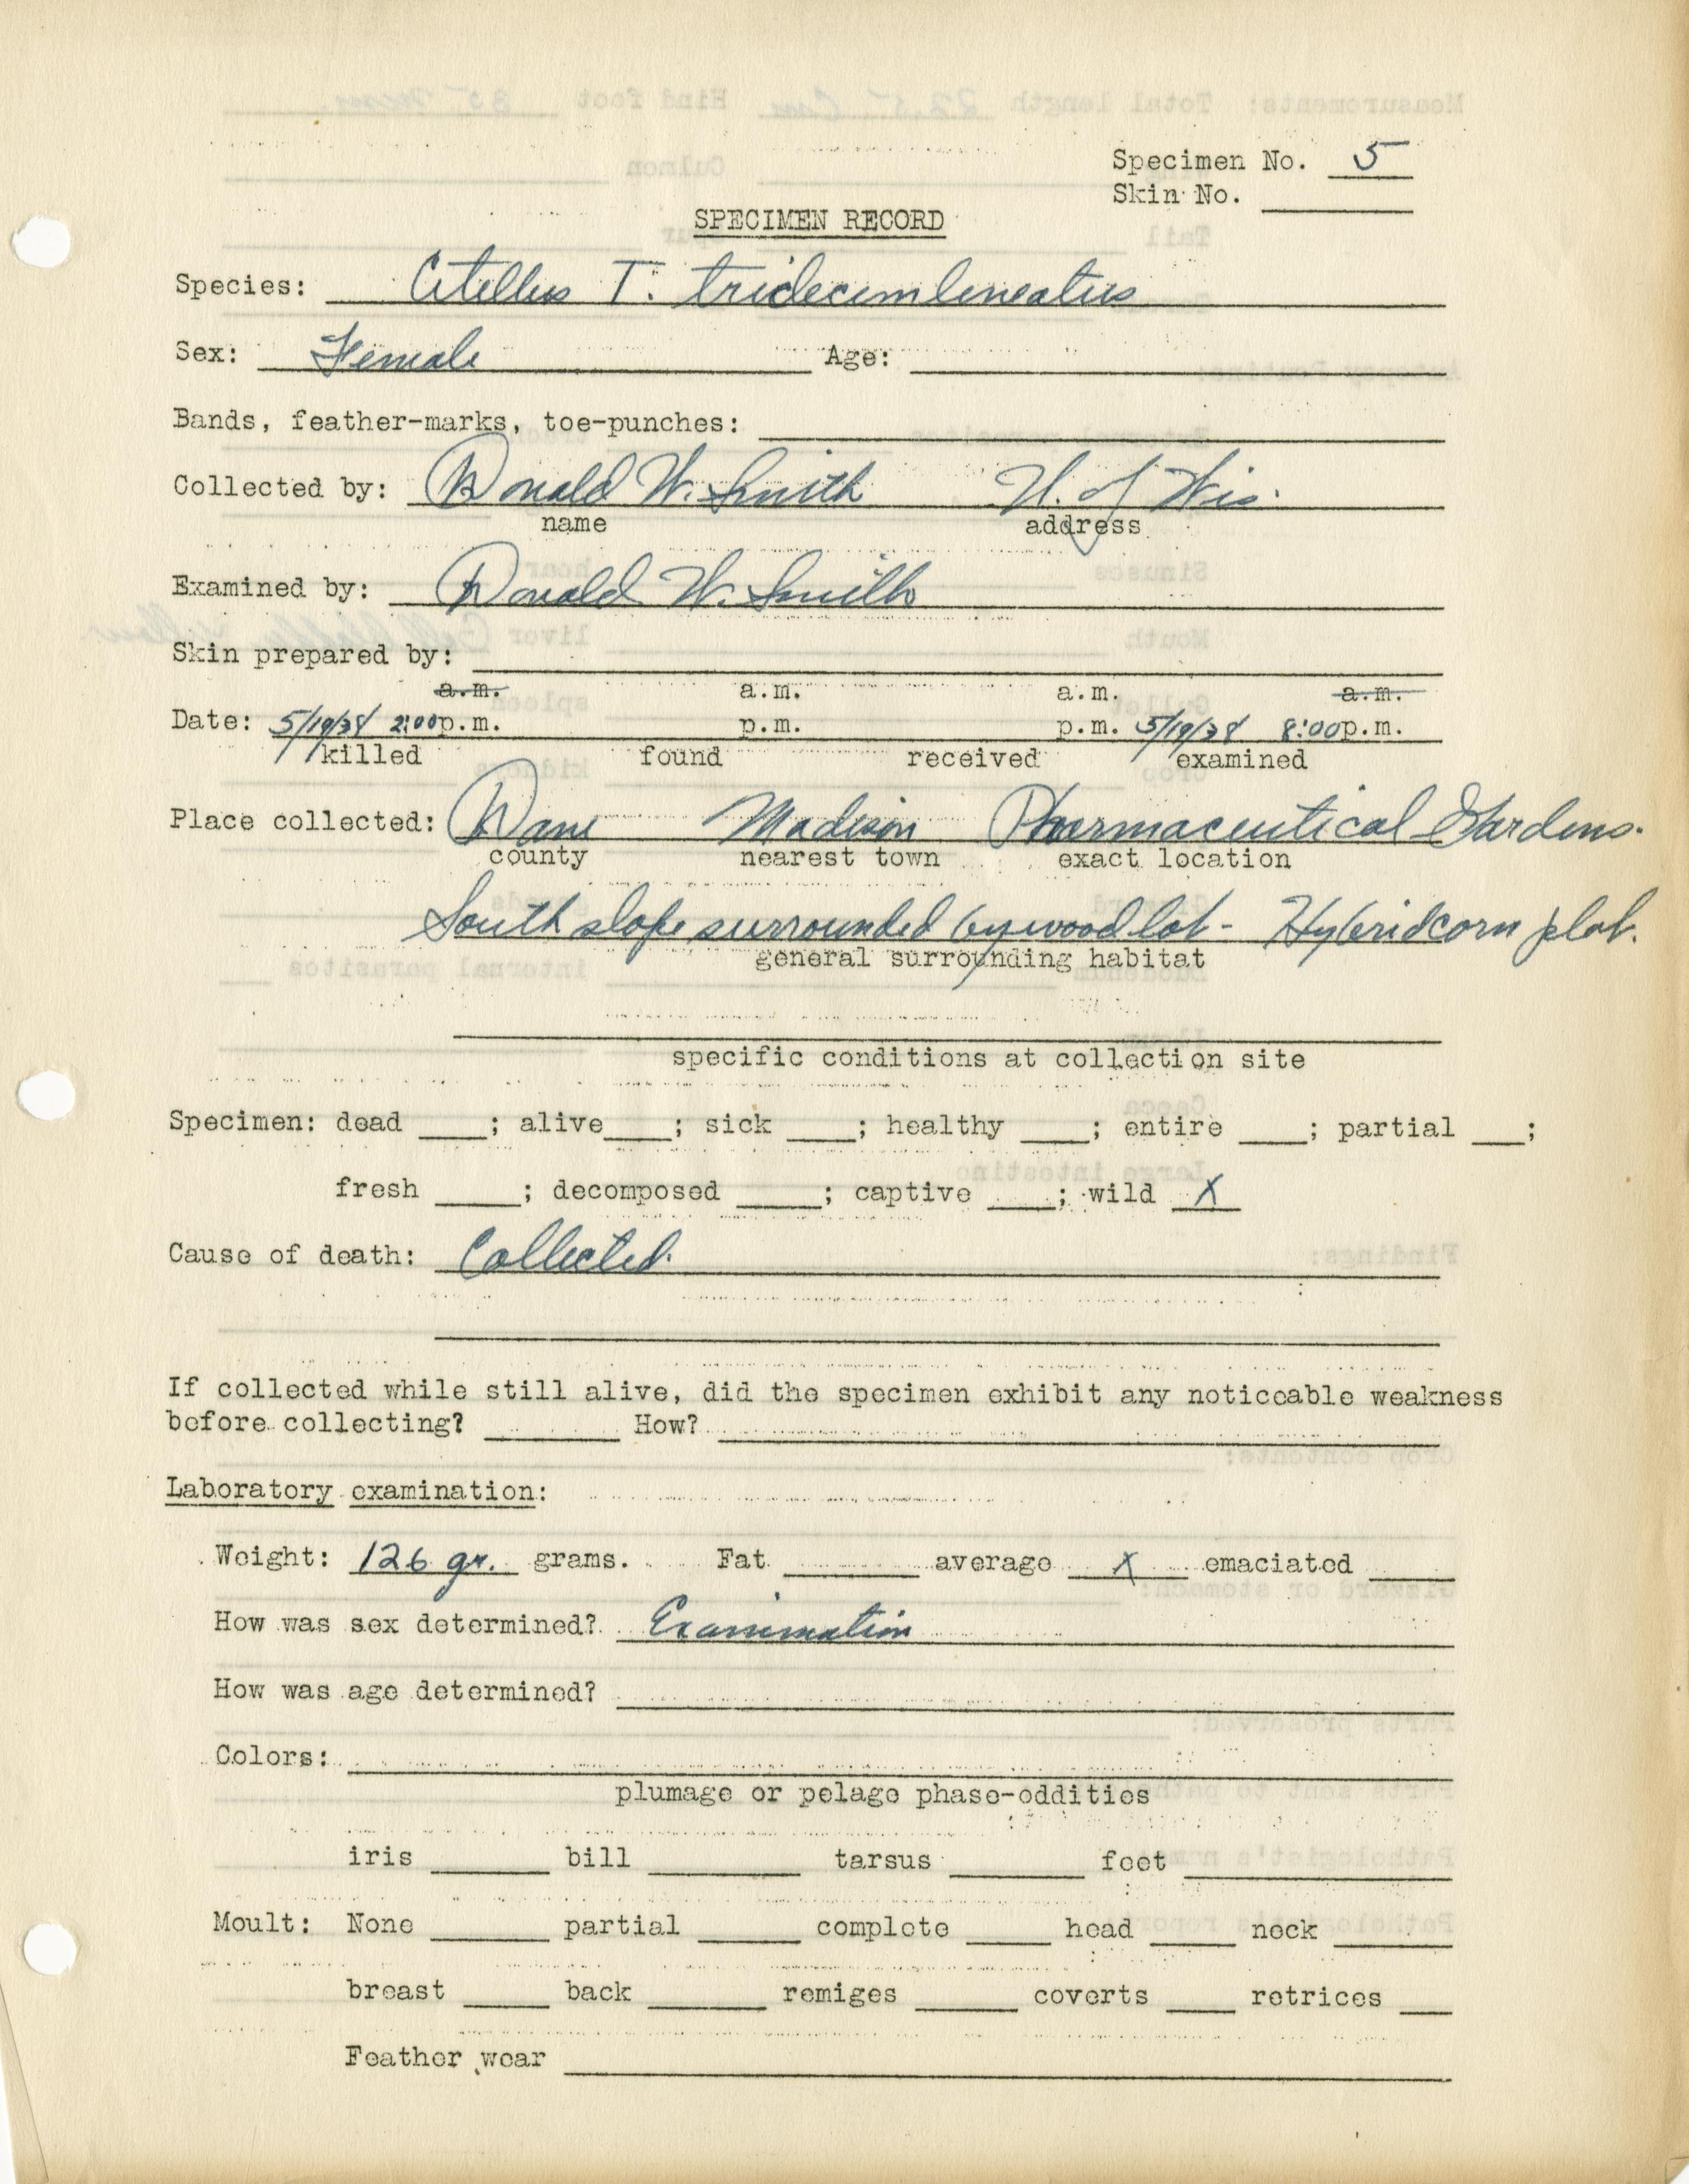 Specimen No. 5
Skin No.
SPECIMEN RECORD
Species: Citellus T. tridecemlineatus
Sex: Female Age:
Bands, feather-marks, toe-punches:
Collected by: Donald W. Smith U. of Wis.
name address
Examined by: Donald W. Smith
Skin prepared by:
a.m. a.m. a.m. a.m.
Date: 5/19/38 2:00 p.m. p.m. p.m. 5/19/38 8:00 p.m.
killed found received examined
Place collected: Dane Madison Pharmaceutical Gardens.
county nearest town exact location
South slope surrounded by wood lot - Hybrid corn plot.
general surrounding habitat
specific conditions at collection site
Specimen: dead ____; alive____; sick ____; healthy ____; entire ____; partial ___;
fresh ____; decomposed ____; captive ____; wild X
Cause of death: Collected.
If collected while still alive, did the specimen exhibit any noticeable weakness
before collecting? ________ How?
Laboratory examination:
Weight: 126 gr. grams. Fat ________ average X emaciated ____
How was sex determined? Examination
How was age determined?
Colors:
plumage or pelage phase-oddities
iris ____ bill ____ tarsus ____ feet ____
Moult: None ____ partial ____ complete ____ head ____ neck ____
breast ____ back ____ remiges ____ coverts ____ retrices ____
Feather wear